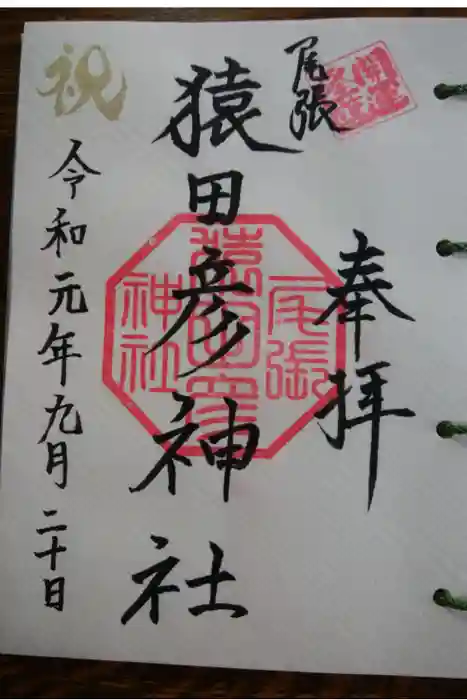 尾張
奉拝
猿田彦神社
尾張
猿田彦
神社
祝
令和元年九月二十日